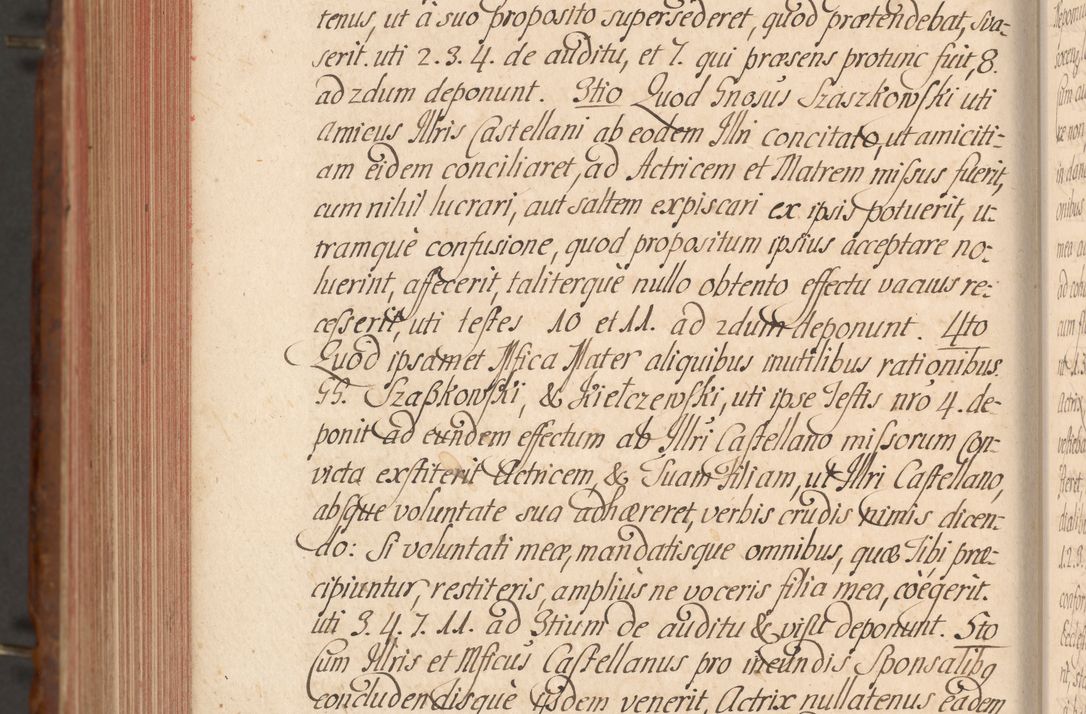 tenus, ut à suo proposito supersederet, quod prætendebat, sva-
serit. uti 2. 3. 4. de auditu, et 7. qui præsens protunc fuit, 8.
ad 2dum deponunt. 3tio Quod Gnosus Szaszkowski uti
amicus Illris Castellani ab eodem Illri concitato, ut amiciti-
am eidem conciliaret, ad Actricem et Matrem missus fuerit,
cum nihil lucrari, aut saltem expiscari ex ipsis potuerit, u-
tramquè confusione, quod propositum ipsius acceptare no-
luerint, affecerit, taliterquè nullo obtento effectu vacuus re-
cesserit, uti testes 10 et 11. ad 2dum deponunt. 4to
Quod ipsamet Mfica Mater aliquibus mutilibus rationibus
GG. Szaßkowski, & Kiełczewski, uti ipse Testis nro 4. de-
ponit ad eundem effectum ab Illri Castellano missorum con-
victa exstiterit Actricem, & Suam Filiam, ut Illri Castellano,
absque voluntate sua adhæreret, verbis crudis nimis dicen-
do: Si voluntati meæ, mandatisque omnibus, quæ Tibi præ-
cipiuntur, restiteris, ampliùs ne voceris filia mea, coëgerit.
uti 3. 4. 7. 11. ad 3tium de auditu & visu deponunt. 5to
Cum Illris et Mficus Castellanus pro ineundis Sponsalibq
concludendisquè iisdem venerit, Actrix nullatenus eadem